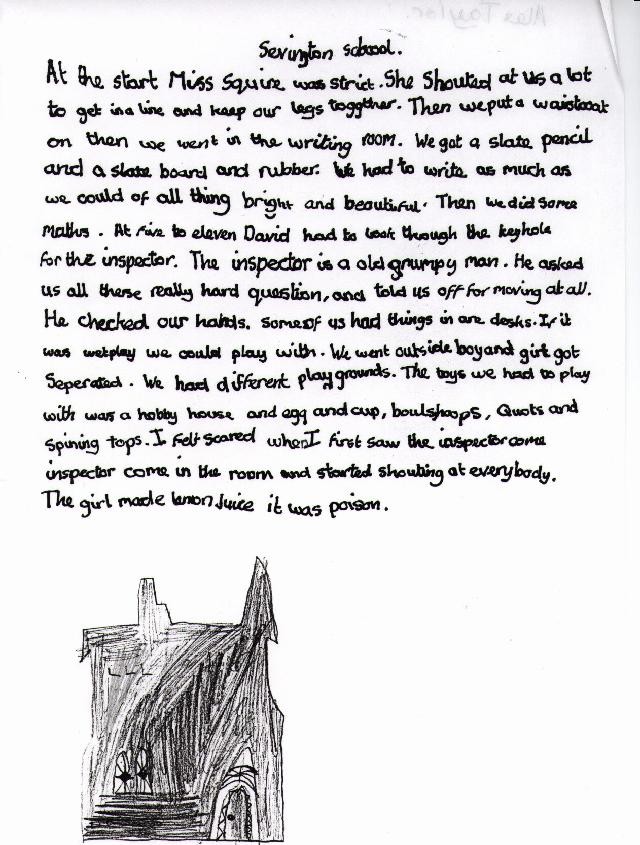 Alex Taylor.
Sevington school.
At the start Miss Squire was strict. She Shouted at us a lot
to get in a line and keep our legs toggther. Then we put a waistcoat
on then we went in the writing room. We got a slate pencil
and a slate board and rubber. We had to write as much as
we could of all thing bright and beautiful. Then we did some
Maths. At five to eleven David had to look through the keyhole
for the inspector. The inspector is a old grumpy man. He asked
us all these really hard question, and told us off for moving at all.
He checked our hands. Some of us had things in are desks. If it
was wetplay we could play with. We went outside boy and girl got
Seperated. We had different playgrounds. The toys we had to play
with was a hobby house and egg and cup, boulshoops, Quots and
Spining tops. I felt scared when I first saw the inspector come
inspector come in the room and started shouting at everybody.
The girl made lemon Juice it was poison.